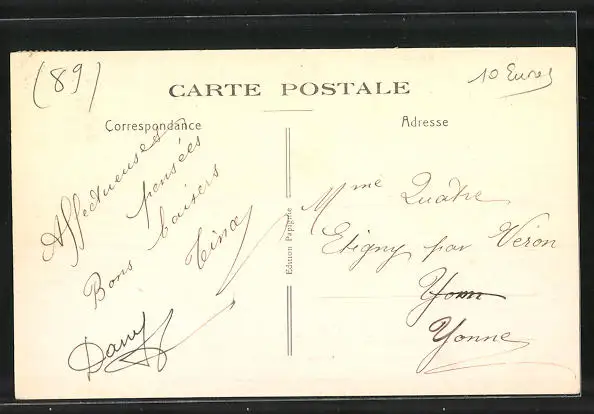 (89)
10 Euros
CARTE POSTALE
Correspondance
Adresse
Affectueuses
pensées
Bons baisers
Tina
Dany
Edition Papigète
Mme Quatre
Etigny par Véron
Yonn
Yonne